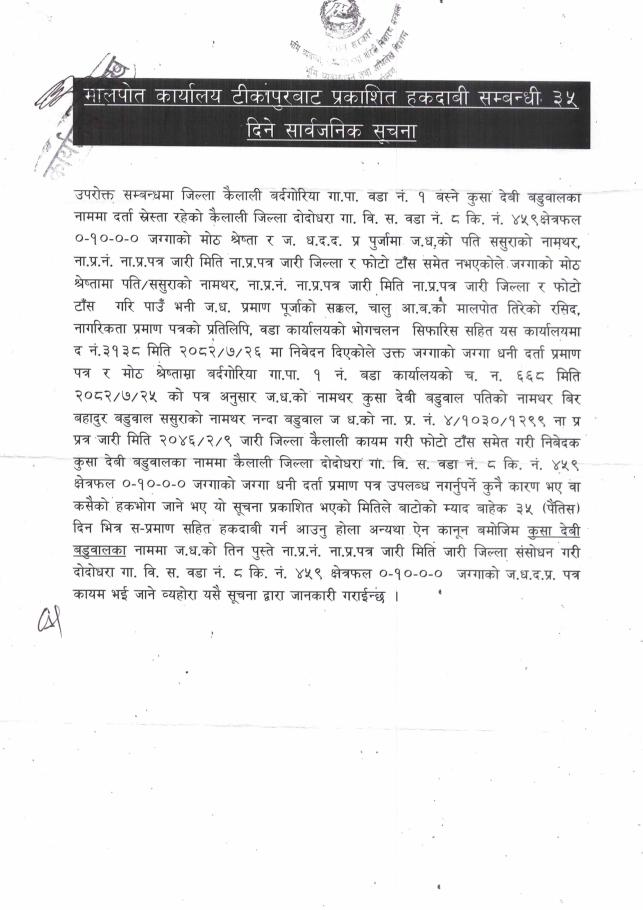 मालपोत कार्यालय टीकापुरबाट प्रकाशित हकदाबी सम्बन्धी ३५
दिने सार्वजनिक सूचना
उपरोक्त सम्बन्धमा जिल्ला कैलाली बर्दगोरिया गा.पा. वडा नं. १ बस्ने कुसा देबी बडुवालका
नाममा दर्ता स्रेस्ता रहेको कैलाली जिल्ला दोदोधरा गा. वि. स. वडा नं. ८ कि. नं. ४५९क्षेत्रफल
०-१०-०-० जग्गाको मोठ श्रेष्ता र ज. ध.द.द. प्र पुर्जामा ज.ध.को पति ससुराको नामथर,
ना.प्र.नं. ना.प्र.पत्र जारी मिति ना.प्र.पत्र जारी जिल्ला र फोटो टाँस समेत नभएकोले जग्गाको मोठ
श्रेष्तामा पति/ससुराको नामथर, ना.प्र.नं. ना.प्र.पत्र जारी मिति ना.प्र.पत्र जारी जिल्ला र फोटो
टाँस गरि पाउँ भनी ज.ध. प्रमाण पूर्जाको सक्कल, चालु आ.ब.को मालपोत तिरेको रसिद,
नागरिकता प्रमाण पत्रको प्रतिलिपि, वडा कार्यालयको भोगचलन सिफारिस सहित यस कार्यालयमा
द नं.३१३८ मिति २०८२/७/२६ मा निवेदन दिएकोले उक्त जग्गाको जग्गा धनी दर्ता प्रमाण
पत्र र मोठ श्रेष्तामा बर्दगोरिया गा.पा. १ नं. बडा कार्यालयको च. न. ६६८ मिति
२०८२/७/२५ को पत्र अनुसार ज.ध.को नामथर कुसा देबी बडुवाल पतिको नामथर बिर
बहादुर बडुवाल ससुराको नामथर नन्दा बडुवाल ज ध.को ना. प्र. नं. ४/१०३०/१२९९ ना प्र
प्रत्र जारी मिति २०४६/२/९ जारी जिल्ला कैलाली कायम गरी फोटो टाँस समेत गरी निवेदक
कुसा देबी बडुवालका नाममा कैलाली जिल्ला दोदोधरा गा. वि. स. वडा नं. ८ कि. नं. ४५९
क्षेत्रफल ०-१०-०-० जग्गाको जग्गा धनी दर्ता प्रमाण पत्र उपलब्ध नगर्नुपर्ने कुनै कारण भए वा
कसैको हकभोग जाने भए यो सूचना प्रकाशित भएको मितिले बाटोको म्याद बाहेक ३५ (पैंतिस)
दिन भित्र स-प्रमाण सहित हकदाबी गर्न आउनु होला अन्यथा ऐन कानून बमोजिम कुसा देबी
बडुवालका नाममा ज.ध.को तिन पुस्ते ना.प्र.नं. ना.प्र.पत्र जारी मिति जारी जिल्ला संसोधन गरी
दोदोधरा गा. वि. स. वडा नं. ८ कि. नं. ४५९ क्षेत्रफल ०-१०-०-० जग्गाको ज.ध.द.प्र. पत्र
कायम भई जाने व्यहोरा यसै सूचना द्वारा जानकारी गराईन्छ ।